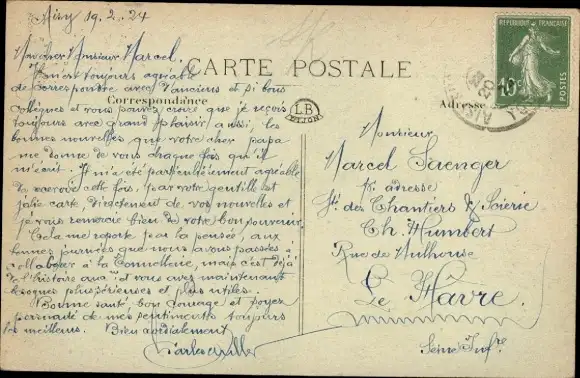 19. 2. 24
Mon cher Monsieur Marcel.
toujours agréable
de correspondre avec d'anciens et si bons
collègues et vous pouvez croire que je reçois
toujours avec grand plaisir aussi, les
bonnes nouvelles que votre cher papa
me donne de vous chaque fois qu'il
m'écrit. Il m'a été particulièrement agréable
de recevoir cette fois, par votre gentille et
jolie carte directement de vos nouvelles et
je vous remercie bien de votre bon souvenir.
Cela me reporte par la pensée, aux
bonnes journées que nous avons passées à
collaborer à la Tonnellerie, mais c'est déjà
de l'histoire et vous avez maintenant
besognes plus sérieuses et plus utiles.
Bonne santé, bon courage et soyez
persuadé de mes sentiments toujours
les meilleurs. Bien cordialement
CARTE POSTALE
Correspondance
LB
DIJON
Adresse
REPUBLIQUE FRANÇAISE
10c
POSTES
Monsieur
Marcel Saenger
pr adresse
Sté des Chantiers & Scierie
Ch. Humbert
Rue de Mulhouse
Le Hâvre.
Seine Infre